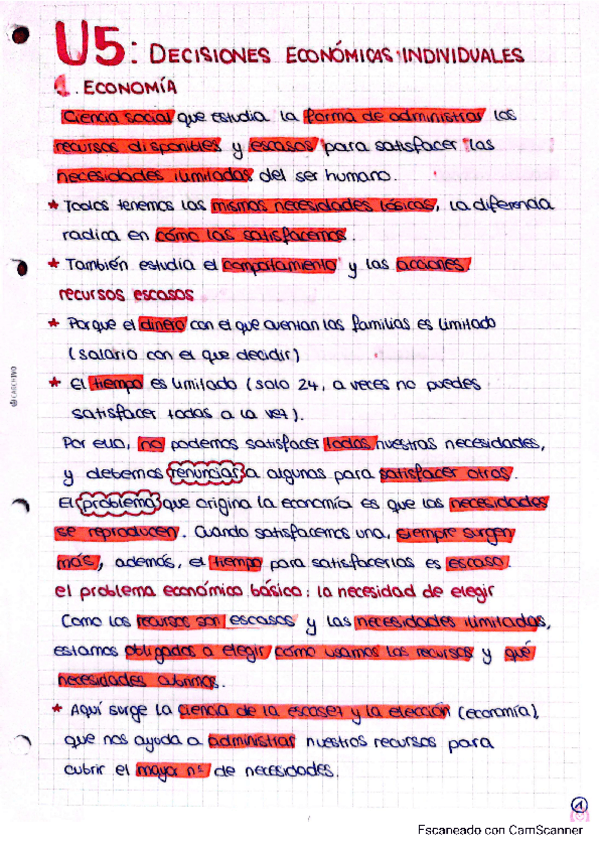 U5: DECISIONES ECONÓMICAS INDIVIDUALES
1. ECONOMÍA
Ciencia social que estudia la forma de administrar los
recursos disponibles y escasos para satisfacer las
necesidades ilimitadas del ser humano.
* Todos tenemos las mismas necesidades básicas, la diferencia
radica en cómo las satisfacemos.
* También estudia el comportamiento y las acciones.
recursos escasos
* Porque el dinero con el que cuentan las familias es limitado
(salario con el que decidir)
* El tiempo es limitado (solo 24, a veces no puedes
satisfacer todas a la vez).
Por ello, no podemos satisfacer todas nuestras necesidades,
y debemos renunciar a algunas para satisfacer otras.
El problema que origina la economía es que las necesidades
se reproducen. Cuando satisfacemos una, siempre surgen
más, además, el tiempo para satisfacerlas es escaso.
el problema económico básico: la necesidad de elegir
Como los recursos son escasos y las necesidades ilimitadas,
estamos obligados a elegir cómo usamos los recursos y qué
necesidades cubrimos.
* Aquí surge la ciencia de la escasez y la elección (economía),
que nos ayuda a administrar nuestros recursos para
cubrir el mayor nº de necesidades.
1
Escaneado con CamScanner